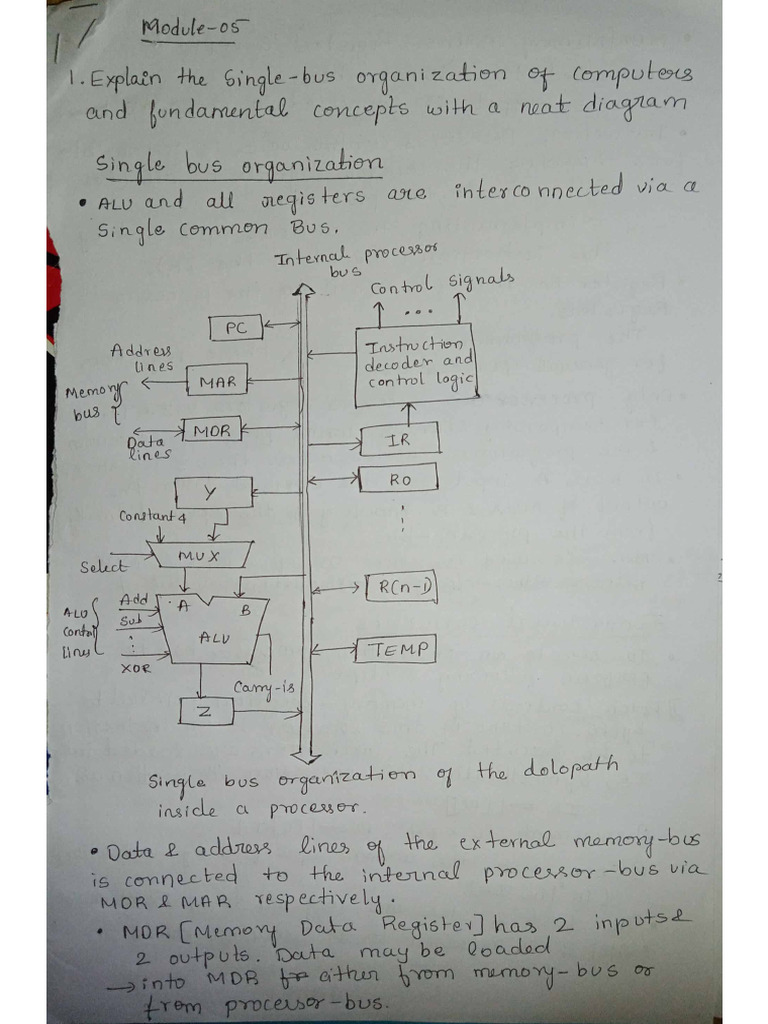 Module-05
1. Explain the Single-bus organization of computers
and fundamental concepts with a neat diagram
Single bus organization
• ALU and all registers are interconnected via a
Single common Bus.
Internal processor
bus
Control signals
...
PC
Instruction
decoder and
control logic
Address
lines
MAR
Memory
bus {
MDR
Data
lines
IR
R0
Y
Constant 4
MUX
Select
R(n-1)
ALU
control
lines
Add
Sub
XOR
A
B
ALU
TEMP
Carry-is
Z
Single bus organization of the dolopath
inside a processor.
• Data & address lines of the external memory-bus
is connected to the internal processor-bus via
MDR & MAR respectively.
• MDR [Memory Data Register] has 2 inputs &
2 outputs. Data may be loaded
→ into MDR either from memory-bus or
from processor-bus.